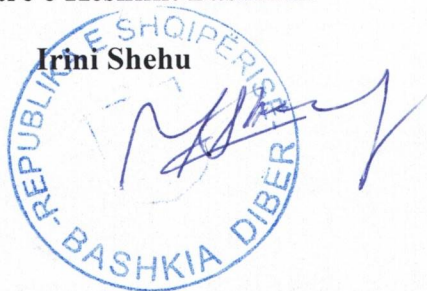 Irini Shehu
REPUBLIKA E SHQIPËRISË
BASHKIA DIBËR